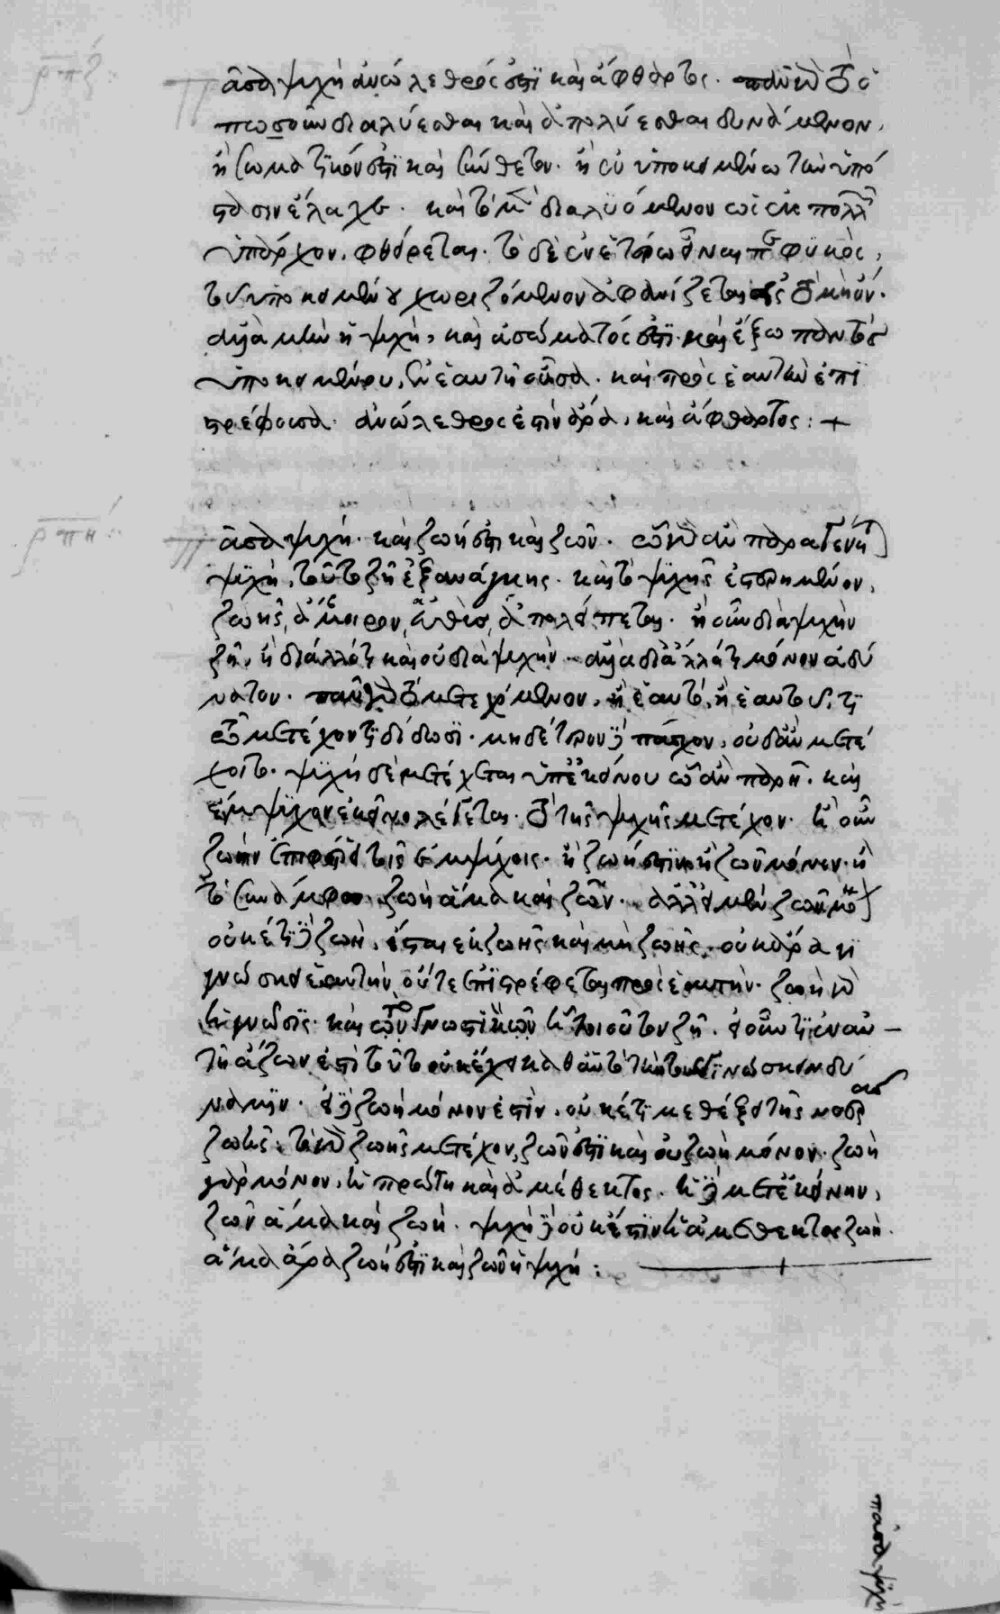 ρπζ:
Πᾶσα ψυχὴ ἀνώλεθρός ἐστι καὶ ἄφθαρτος. πᾶν γὰρ τὸ
ὁπωσοῦν διαλύεσθαι καὶ ἀπολύεσθαι δυνάμενον,
ἢ σωματικόν ἐστι καὶ σύνθετον. ἢ ἐν ὑποκειμένω τὴν ὑπό
στασιν ἔλαχε. καὶ τὸ μὲν διαλυόμενον ὡς ἐκ πολλῶν
ὑπάρχον, φθείρεται. τὸ δὲ ἐν ἑτέρω εἶναι πεφυκὸς,
τοῦ ὑποκειμένου χωριζόμενον ἀφανίζεται εἰς τὸ μὴ ὄν.
ἀλλὰ μὴν ἡ ψυχὴ, καὶ ἀσώματός ἐστι. καὶ ἔξω παντὸς
ὑποκειμένου, ἐν ἑαυτῆ οὖσα. καὶ πρὸς ἑαυτὴν ἐπι
στρέφουσα. ἀνώλεθρος ἐστὶν ἄρα, καὶ ἄφθαρτος: +
ρπη:
Πᾶσα ψυχή. καὶ ζωή ἐστι καὶ ζῶν. ὧ γὰρ ἂν παραγένηται
ψυχὴ, τοῦτο ζῆ ἐξ ἀνάγκης. καὶ τὸ ψυχῆς ἐστερημένον,
ζωῆς ἄμοιρον εὐθὺς ἀπολείπεται. ἢ οὖν διὰ ψυχὴν
ζῆ, ἢ δι' ἄλλό τι καὶ οὐ διὰ ψυχήν. ἀλλὰ δι' ἄλλό τι μόνον ἀδύ
νατον. πᾶν γὰρ τὸ μετεχόμενον, ἢ ἑαυτὸ, ἢ ἑαυτοῦ τι
τῶ μετέχοντι δίδωσι. μηδέτερον δὲ παρέχον, οὐδ' ἂν μετέ
χοιτο. ψυχὴ δὲ μετέχεται ὑπ' ἐκείνου ὧ ἂν παρῆ. καὶ
ἔμψυχον ἐκεῖνο λέγεται. τὸ τῆς ψυχῆς μετέχον. εἰ οὖν
ζωὴν ἐπιφέρει τοῖς ἐμψύχοις. ἢ ζωή ἐστιν ἢ ζῶν μόνον. ἢ
τὸ συναμφότερον ζωὴ ἅμα καὶ ζῶν. ἀλλ' εἰ μὲν ζῶν μόνον
οὐκέτι δὲ ζωὴ, ἔσται ἐκ ζωῆς καὶ μὴ ζωῆς. οὐκ ἄρα γι
γνώσκει ἑαυτὴν οὔτε ἐπιστρέφεται πρὸς ἑαυτήν. ζωὴ γὰρ
ἡ γνῶσις. καὶ τὸ γνωστικὸν ἧ τοιοῦτον ζῆ. εἰ οὖν τι ἐν αὐ–
τῆ ἄζων ἐστὶ τοῦτο οὐκ ἔχει καθ' αὑτὸ τὴν τοῦ γινώσκειν δύ
ναμιν. εἰ δὲ ζωὴ μόνον ἐστὶν, οὐκέτι μεθέξει τῆς νοερᾶς
ζωῆς. τὸ γὰρ ζωῆς μετέχον, ζῶν ἐστι καὶ οὐ ζωὴ μόνον. ζωὴ
γὰρ μόνον, ἡ πρώτη καὶ ἀμέθεκτος. ἡ δὲ μετ' ἐκείνην,
ζῶν ἅμα καὶ ζωή. ψυχὴ δὲ οὐκ ἔστιν ἡ ἀμέθεκτος ζωή.
ἅμα ἄρα ζωή ἐστι καὶ ζῶν ἡ ψυχή:
πᾶσα ψυχὴ